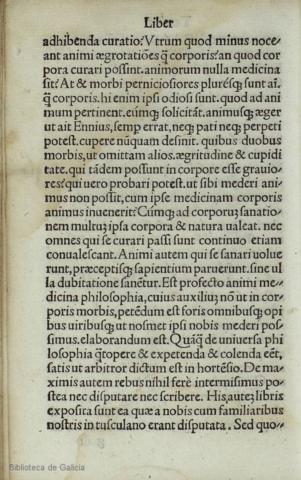 Liber
adhibenda curatio? Vtrum quod minus noce-
ant animi ægrotatiões q̃ corporis? an quod cor
pora curari possint. animorum nulla medicina
sit? At & morbi perniciosiores plurésq; sunt aĩ.
q̃ corporis. hi enim ipsi odiosi sunt. quod ad ani
mum pertinent. eumq; solicitãt. animusq; æger
ut ait Ennius, semp errat, neq; pati neq; perpeti
potest. cupere nũquam desinit. quibus duobus
morbis, ut omittam alios. ægritudine & cupidi
tate. qui tãdem possunt in corpore esse grauio-
res? qui uero probari potest. ut sibi mederi ani-
mus non possit, cum ipse medicinam corporis
animus inuenerit? Cũmq; ad corporuʒ sanatio-
nem multuʒ ipsa corpora & natura ualeat. nec
omnes qui se curari passi sunt continuo etiam
conualescant. Animi autem qui se sanari uolue
runt, præceptisq; sapientium paruerunt. sine ul
la dubitatione sanẽtur. Est profecto animi me-
dicina philosophia, cuius auxiliuʒ nõ ut in cor-
poris morbis, petẽdum est foris omnibusq; opi
bus uiribusq; ut nosmet ipsi nobis mederi pos-
simus. elaborandum est. Quãq̃ de uniuersa phi
losophia q̃topere & expetenda & colenda eẽt,
satis ut arbitror dictum est in hortẽsio. De ma-
ximis autem rebus nihil ferè intermisimus po-
stea nec disputare nec scribere. His auteʒ libris
exposita sunt ea quæ a nobis cum familiaribus
nostris in tusculano erant disputata. Sed quo-
Biblioteca de Galicia